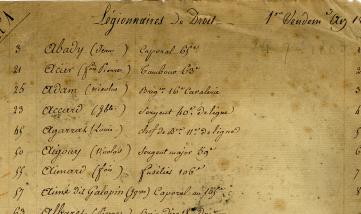 Légionnaires de Droit 1er Vendem. An
3 Abady (Jean) Caporal 65e
21 Acier (fçois Pierre) Tambour 63e
25 Adam (Nicolas) Brigr 16e Cavalerie
23 Accard (Jbte) Sergent 40e de ligne
45 Agarrat (Louis) chef de Bon 11e de ligne
50 Aigouy (Nicolas) Sergent major 59e
55 Aimard (fçois) fusilier 106e
57 Aimé dit Galopin Caporal au
63